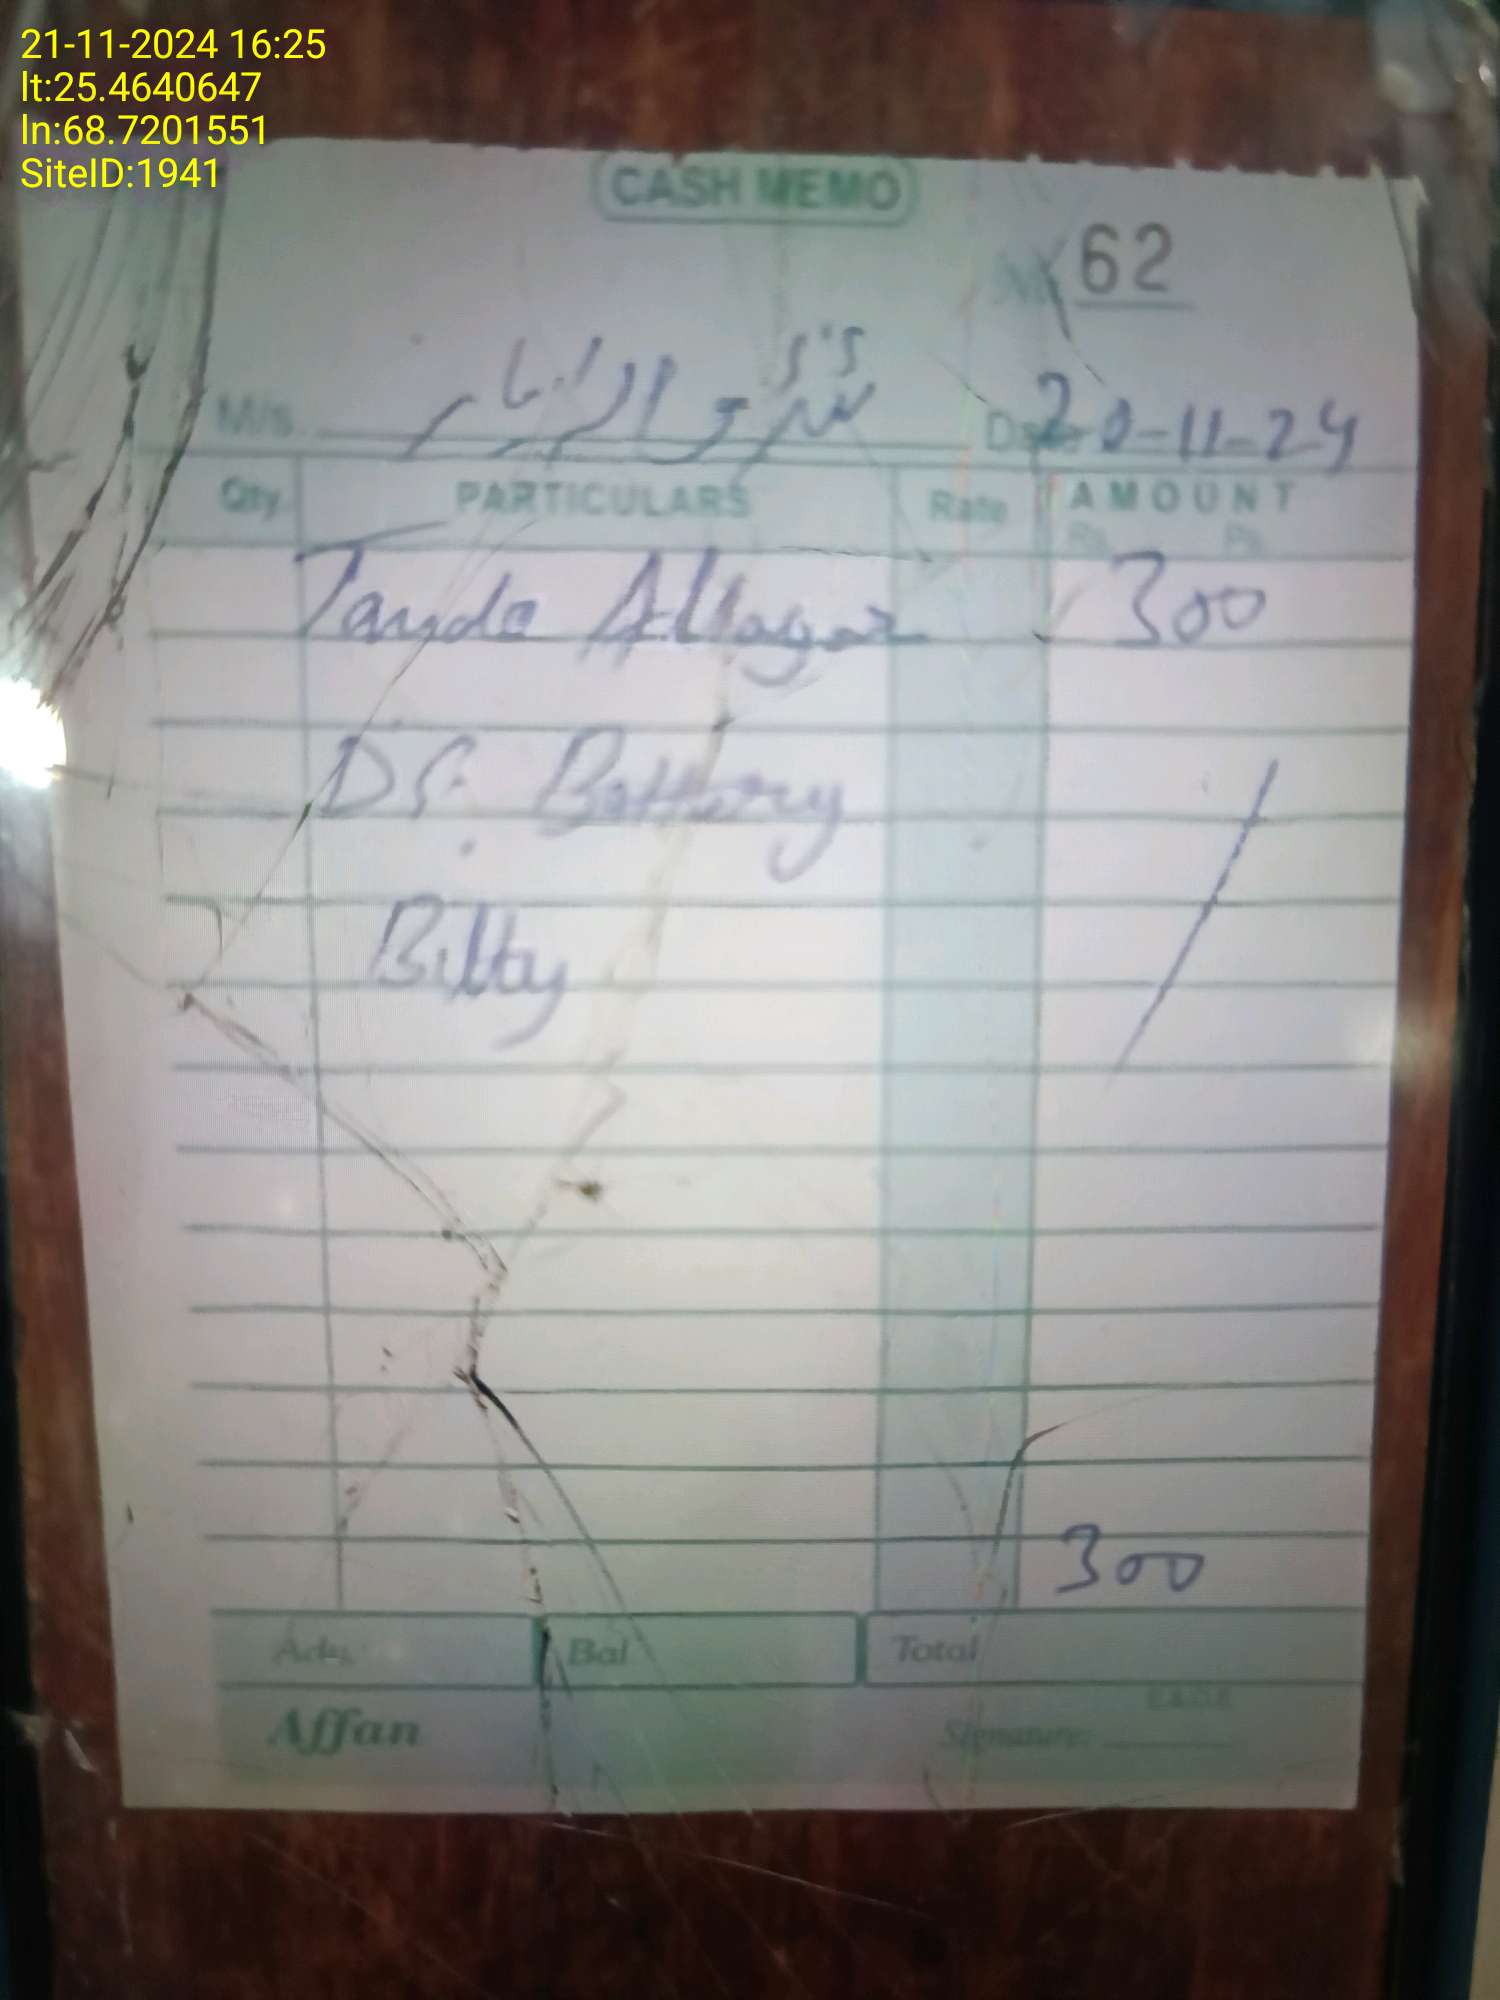 21-11-2024 16:25
lt:25.4640647
ln:68.7201551
SiteID:1941
CASH MEMO
62
M/s. Date 20-11-24
Qty. PARTICULARS Rate AMOUNT
Rs. Ps.
Tando Allayar 300
Battery
Bilty
300
Adv. Bal Total
E.&O.E
Affan Signature: